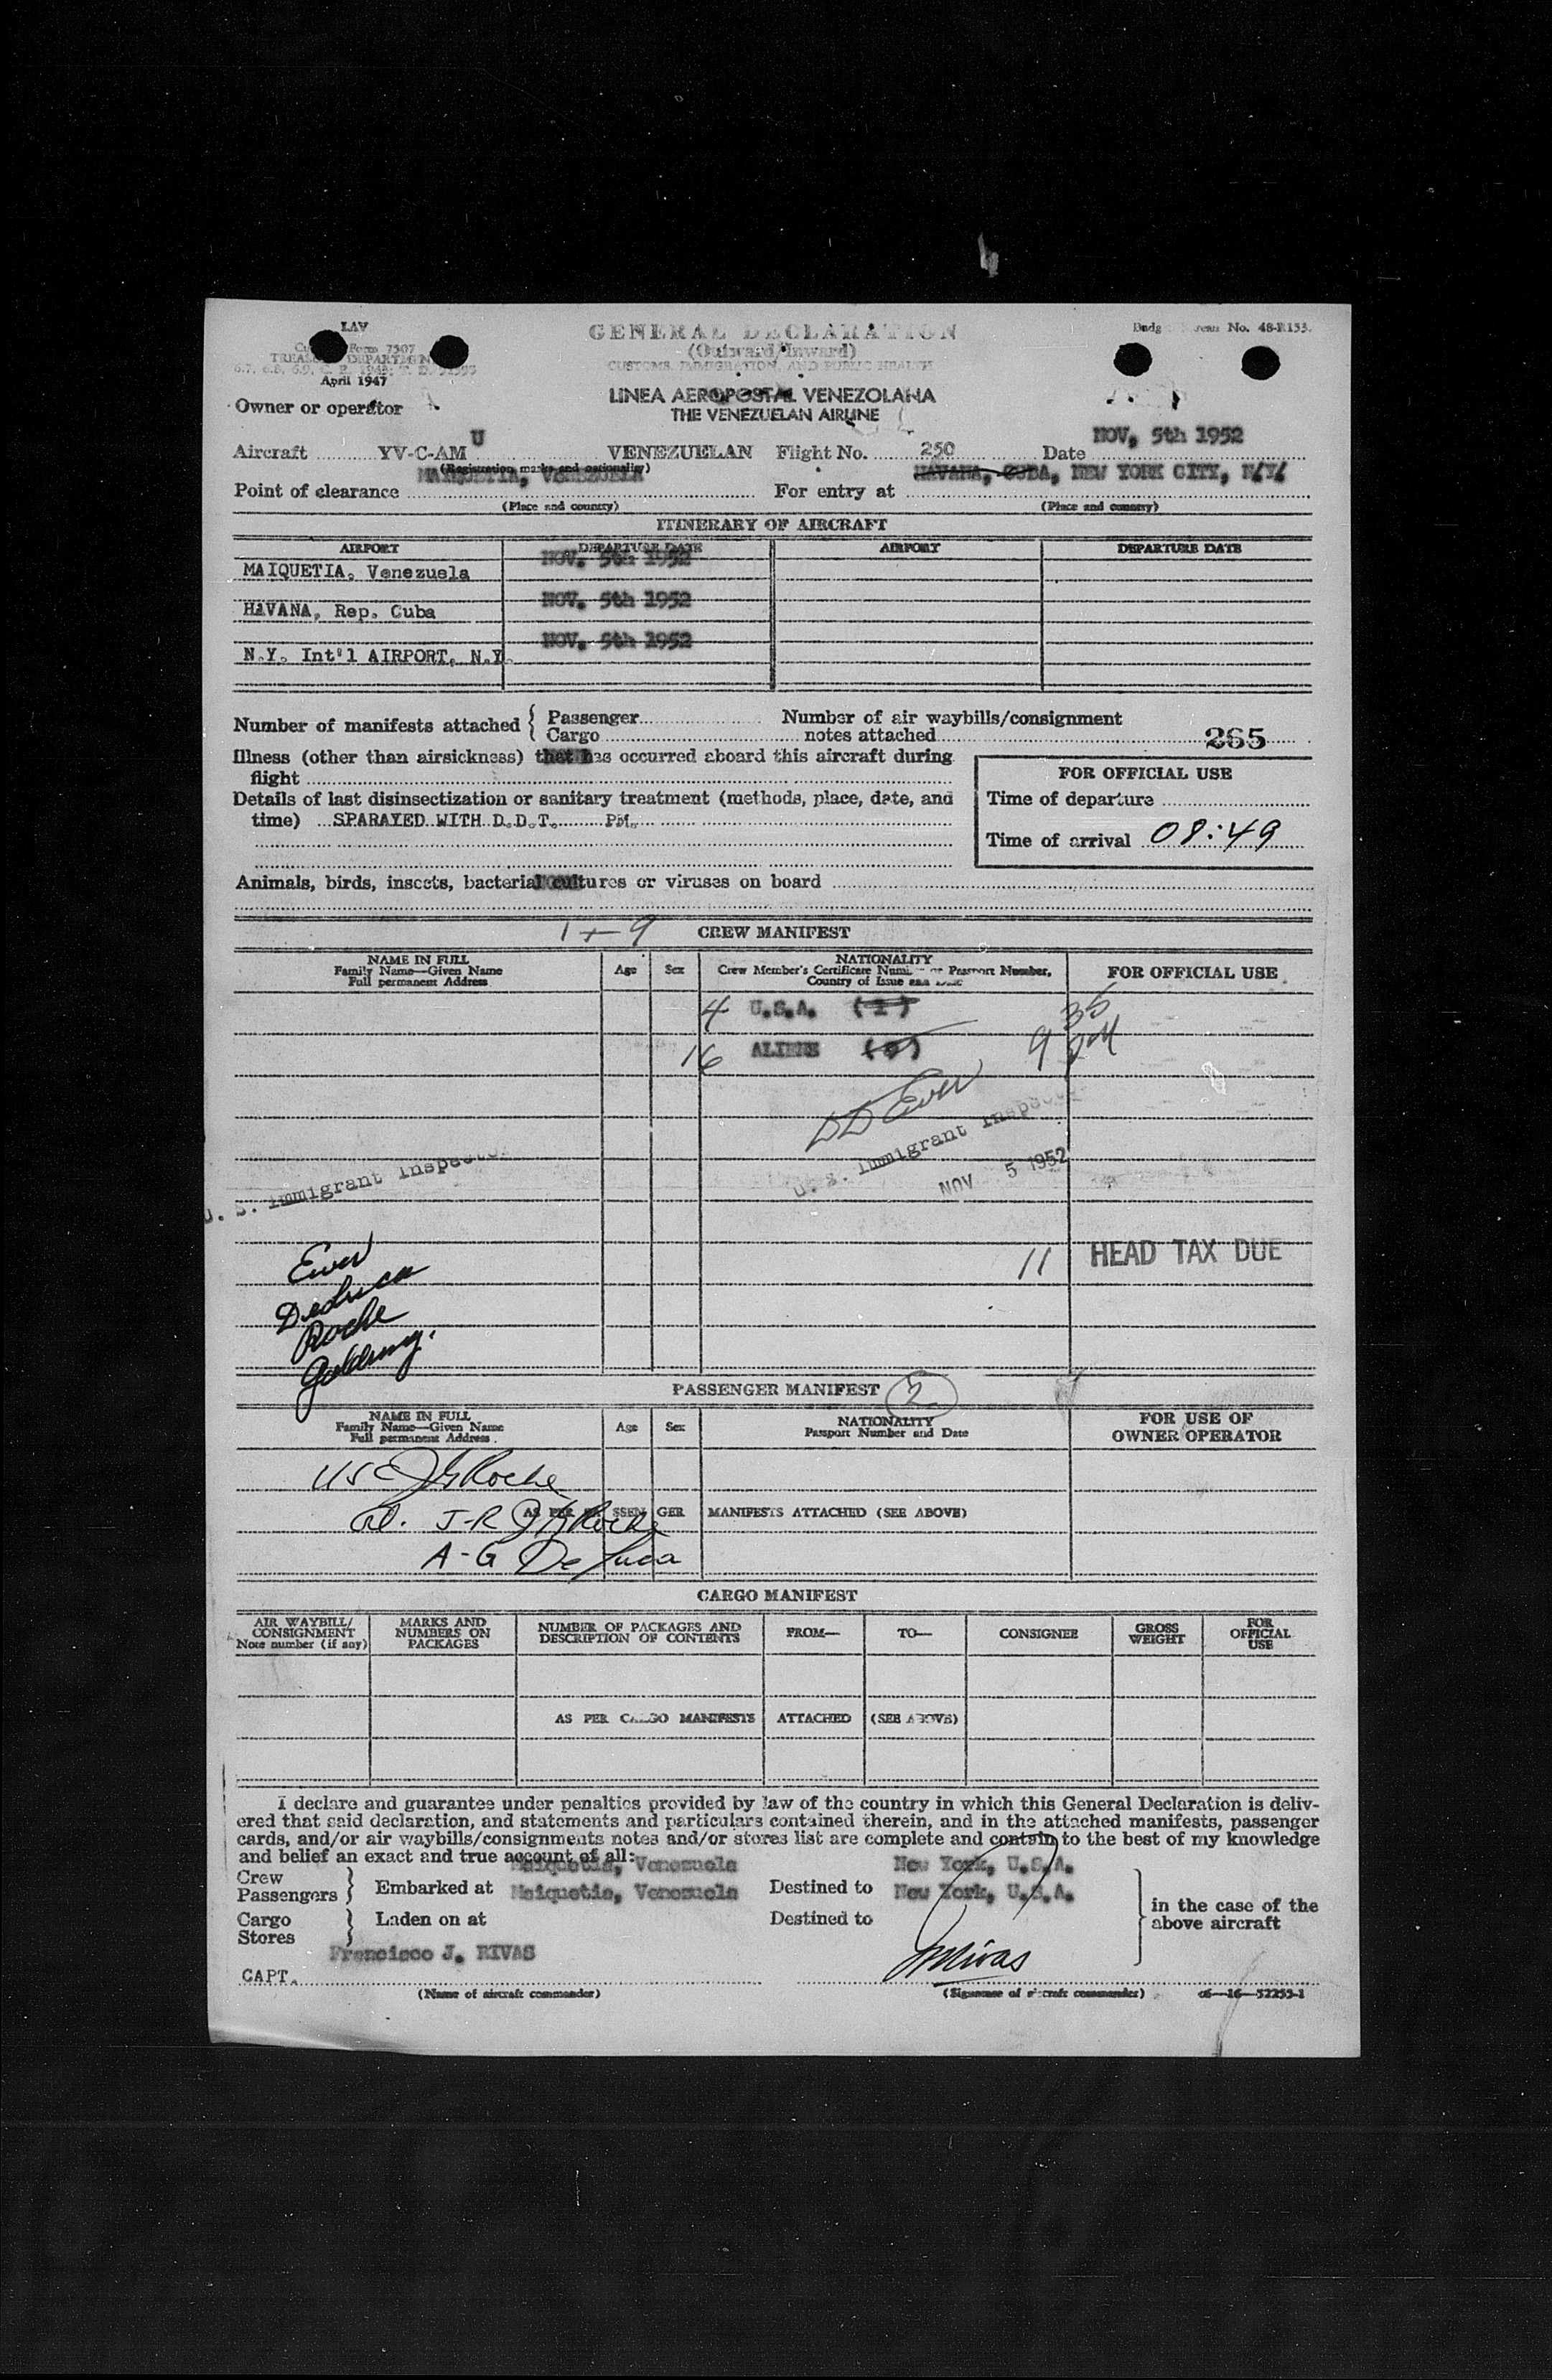 LAV
Form 7507
TREASURY DEPARTMENT
April 1947
GENERAL DECLARATION
(Outward/Inward)
CUSTOMS, IMMIGRATION, AND PUBLIC HEALTH
No. 48-R133.
LINEA AEROPOSTAL VENEZOLANA
THE VENEZUELAN AIRLINE
Owner or operator
Aircraft YV-C-AMU VENEZUELAN Flight No. 250 Date NOV, 5th 1952
(Registration marks and nationality)
Point of clearance MAIQUETIA, VENEZUELA For entry at HAVANA, CUBA, NEW YORK CITY, N.Y.
(Place and country) (Place and country)
ITINERARY OF AIRCRAFT
AIRPORT DEPARTURE DATE AIRPORT DEPARTURE DATE
MAIQUETIA, Venezuela NOV. 5th 1952
HAVANA, Rep. Cuba NOV. 5th 1952
N.Y. Int'l AIRPORT, N.Y. NOV. 5th 1952
Number of manifests attached { Passenger Number of air waybills/consignment
Cargo notes attached 265
Illness (other than airsickness) that has occurred aboard this aircraft during
flight
FOR OFFICIAL USE
Details of last disinsectization or sanitary treatment (methods, place, date, and
time) SPARAYED WITH D.D.T. PM.
Time of departure
Time of arrival 08:49
Animals, birds, insects, bacterial cultures or viruses on board
1 + 9 CREW MANIFEST
NAME IN FULL
Family Name—Given Name
Full permanent Address
Age Sex
NATIONALITY
Crew Member's Certificate Number or Passport Number,
Country of Issue and Date
FOR OFFICIAL USE
4 U.S.A. (1)
16 ALIENS
9 35
DD Ewer
U. S. Immigrant Inspector
NOV 5 1952
U. S. Immigrant Inspector
11 HEAD TAX DUE
Ewer
Roche
PASSENGER MANIFEST 2
NAME IN FULL
Family Name—Given Name
Full permanent Address
Age Sex
NATIONALITY
Passport Number and Date
FOR USE OF
OWNER OPERATOR
US JG Roche
al. J-R JG Roche
AS PER PASSENGER MANIFESTS ATTACHED (SEE ABOVE)
A-G De Luca
CARGO MANIFEST
AIR WAYBILL/
CONSIGNMENT
Note number (if any)
MARKS AND
NUMBERS ON
PACKAGES
NUMBER OF PACKAGES AND
DESCRIPTION OF CONTENTS
FROM— TO— CONSIGNEE
GROSS
WEIGHT
FOR
OFFICIAL
USE
AS PER CARGO MANIFESTS ATTACHED (SEE ABOVE)
I declare and guarantee under penalties provided by law of the country in which this General Declaration is deliv-
ered that said declaration, and statements and particulars contained therein, and in the attached manifests, passenger
cards, and/or air waybills/consignments notes and/or stores list are complete and contain to the best of my knowledge
and belief an exact and true account of all:
Crew Maiquetia, Venezuela New York, U.S.A.
Passengers } Embarked at Maiquetia, Venezuela Destined to New York, U.S.A. in the case of the
Cargo } Laden on at Destined to above aircraft
Stores
Francisco J. RIVAS
CAPT.
(Name of aircraft commander) (Signature of aircraft commander) 16—52255-1